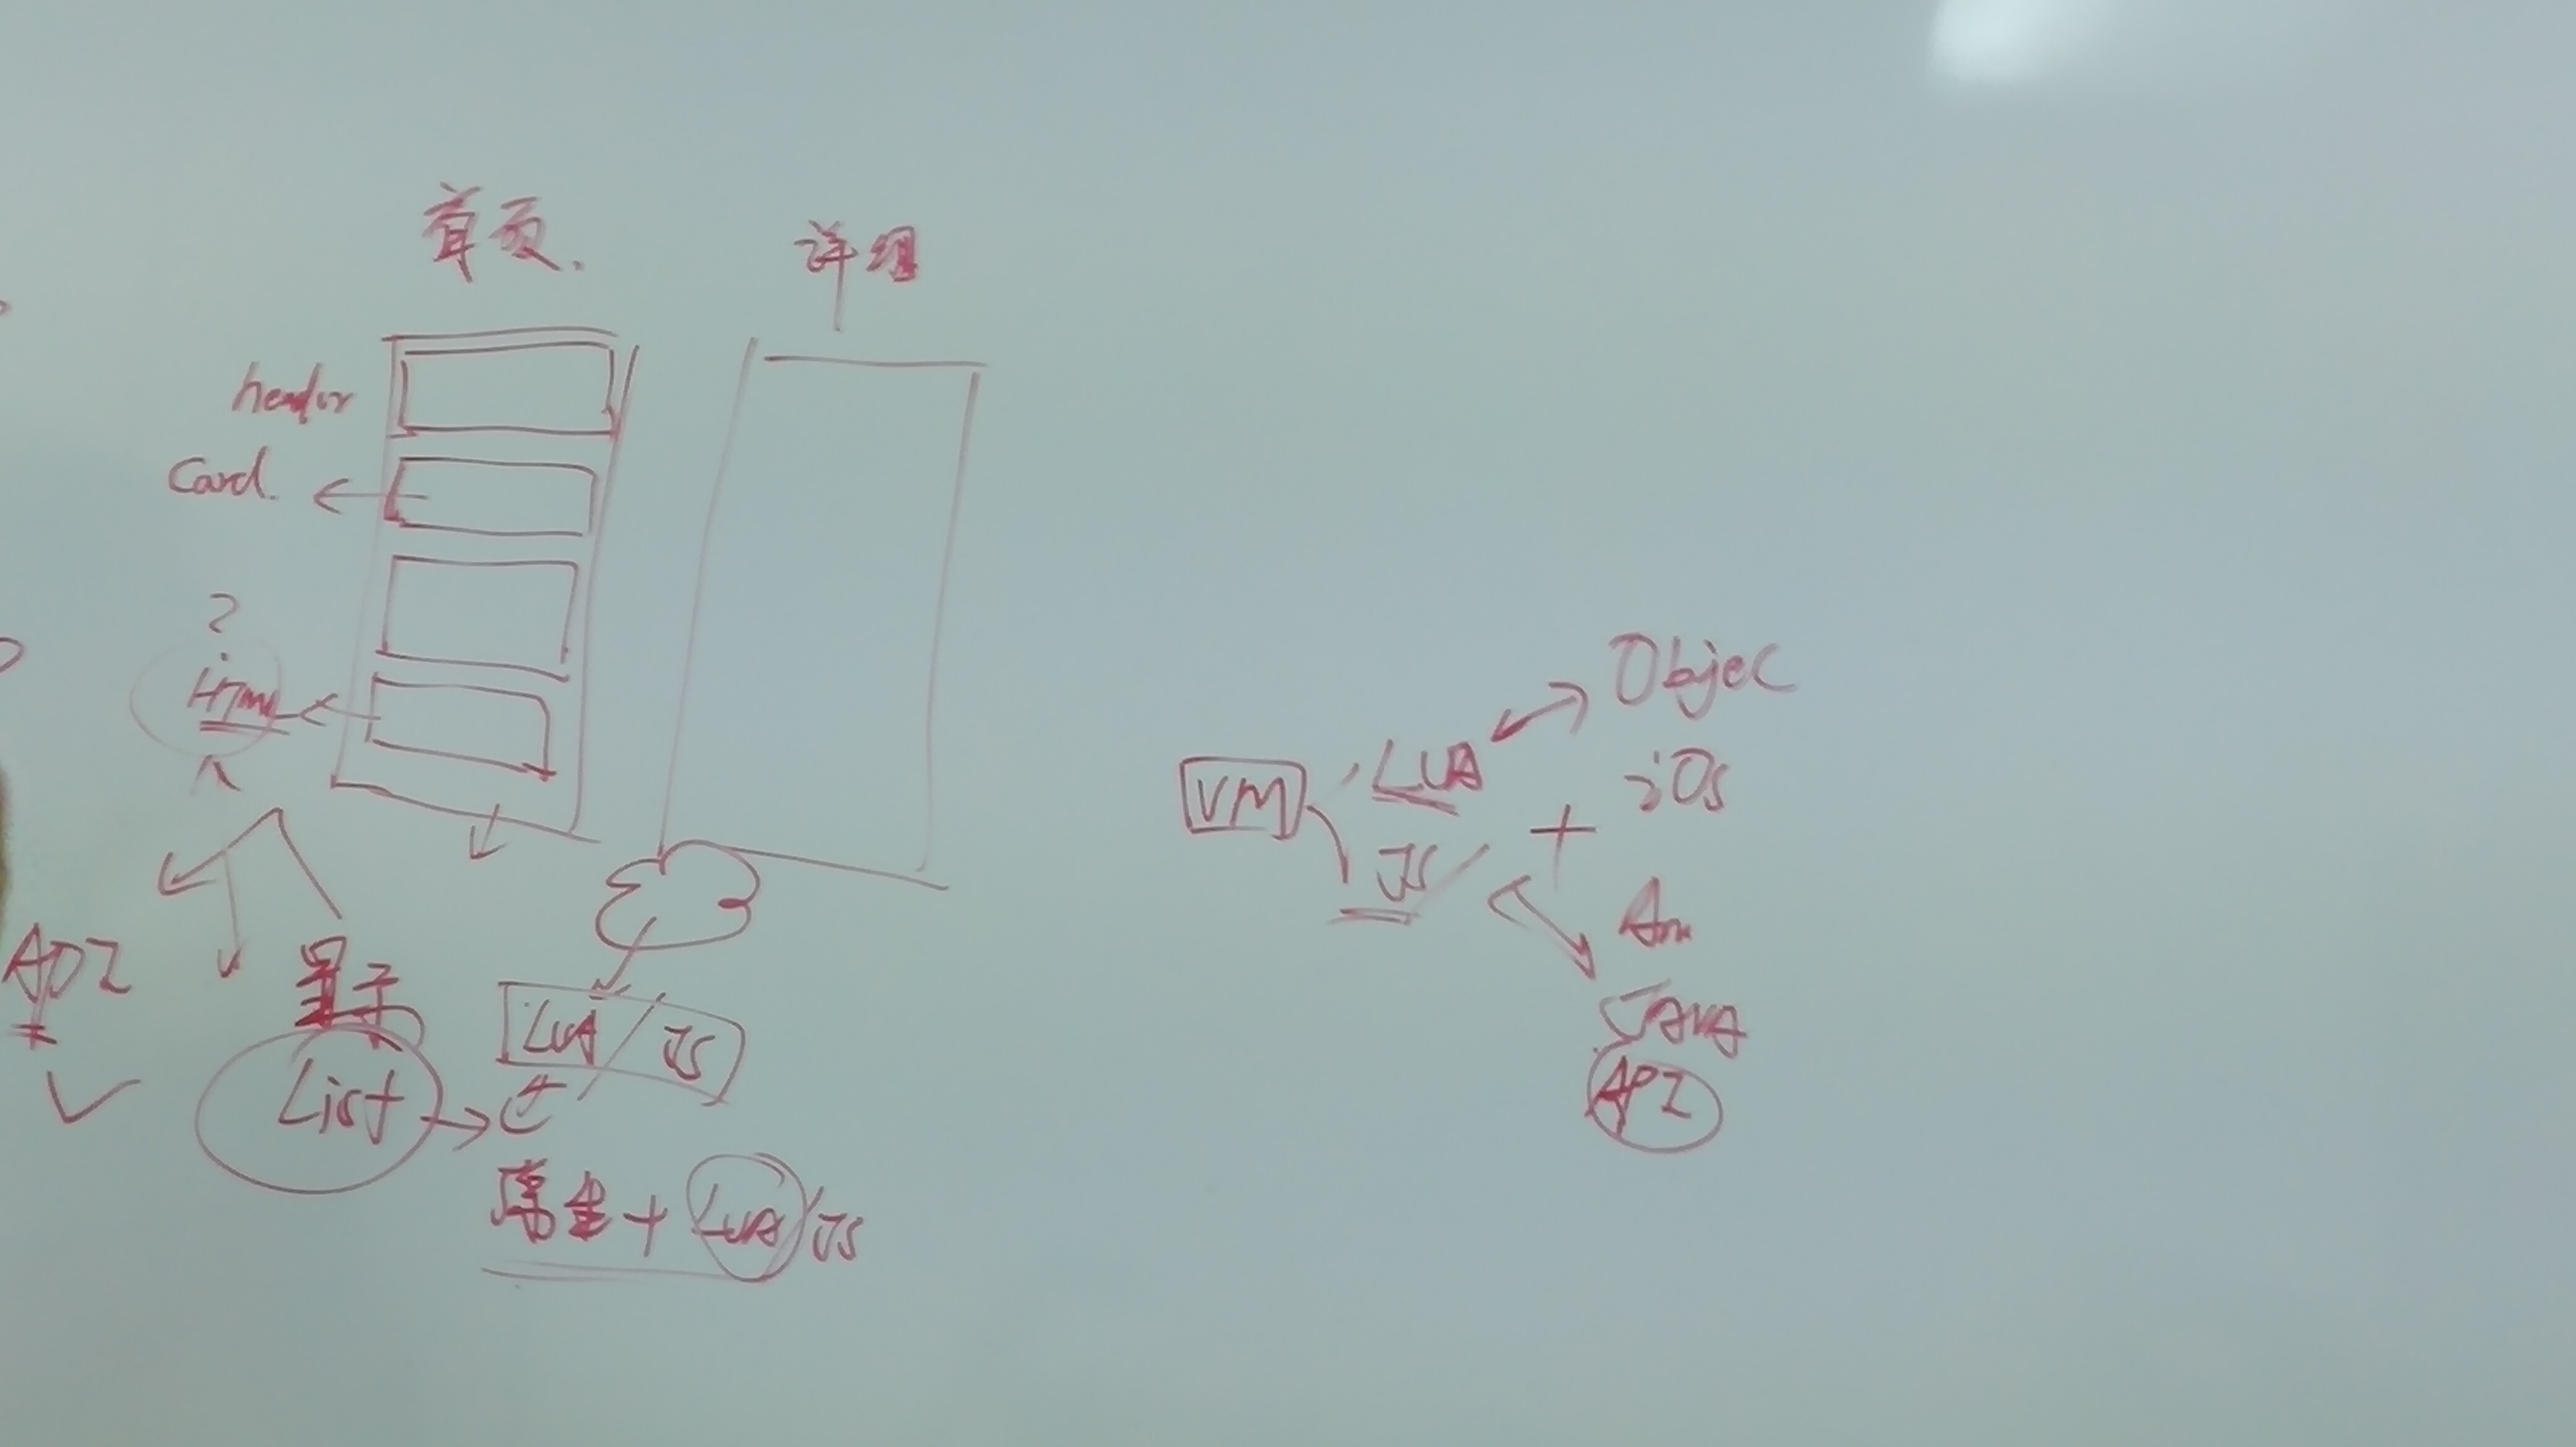 首页.
详细
header
Card.
?
Html
API
量子
List
LUA / JS
原生 + LUA / JS
VM
LUA
JS
+
Objec
iOS
An
JAVA
API